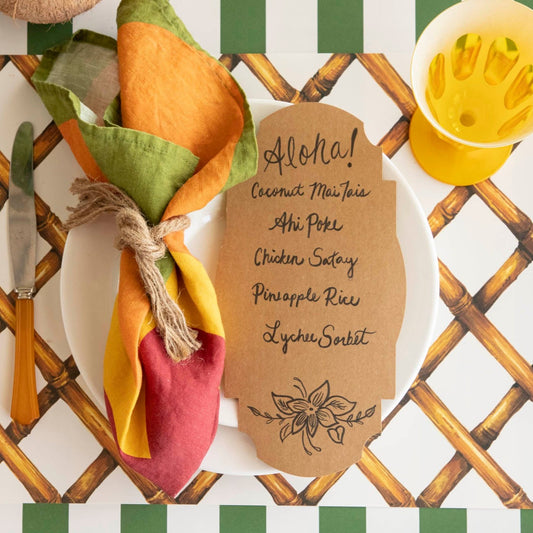 Aloha!
Coconut Mai Tais
Ahi Poke
Chicken Satay
Pineapple Rice
Lychee Sorbet